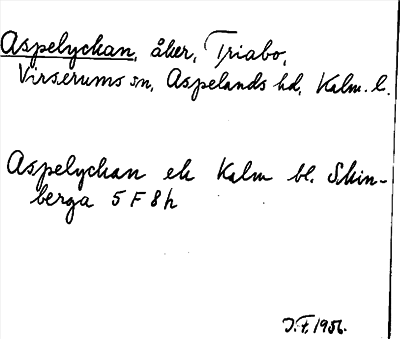 Aspelyckan, åker, Triabo,
Virserums sn, Aspelands hd, Kalm. l.
Aspelyckan ek Kalm bl. Skin-
berga 5 F 8 h
J.F. 1956.